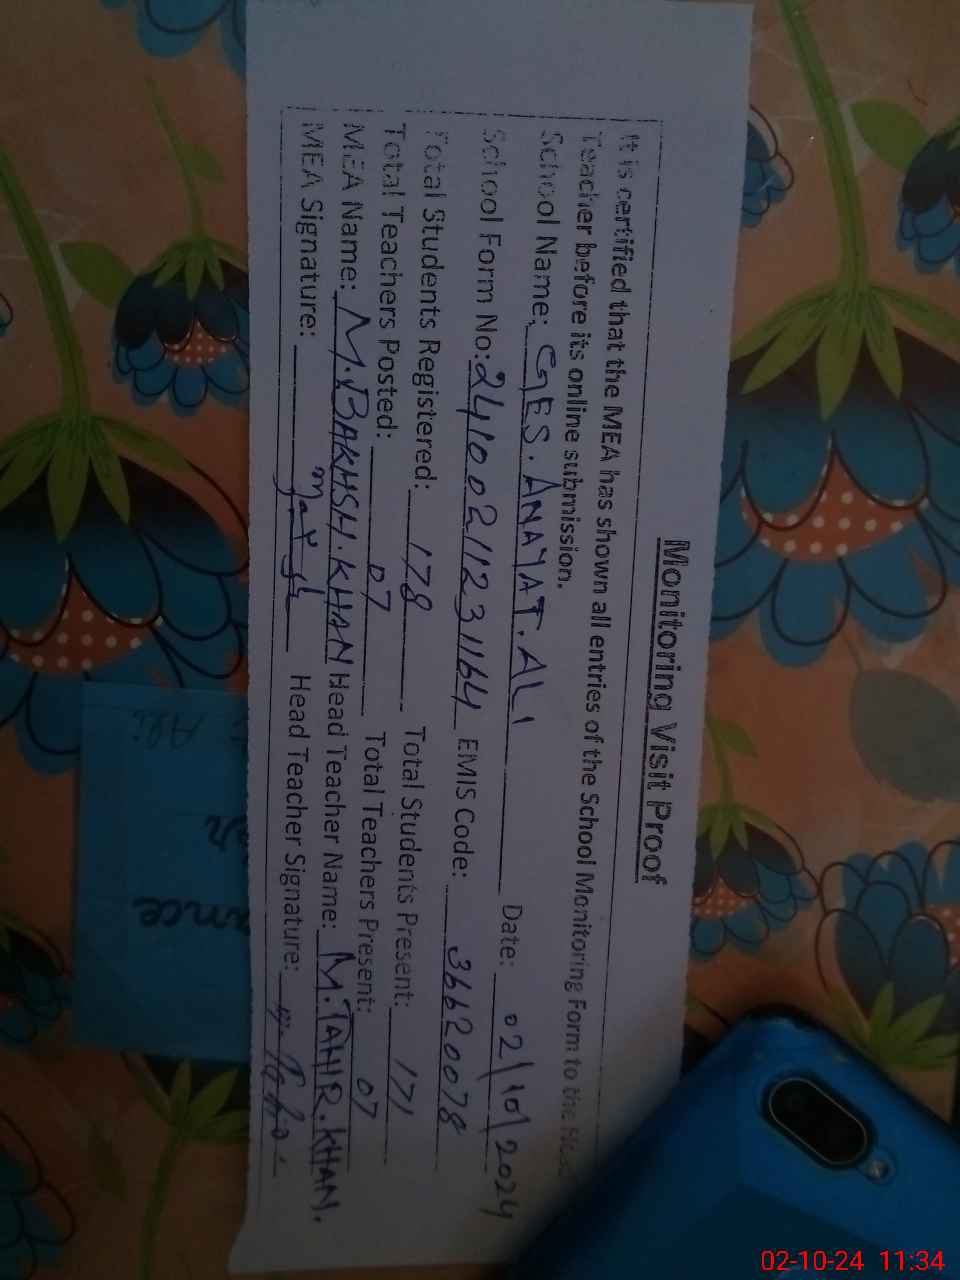 Monitoring Visit Proof
It is certified that the MEA has shown all entries of the School Monitoring Form to the
Teacher before its online submission.
School Name: GES. ANAYAT. ALI Date: 02/10/2024
School Form No: 24100211231164 EMIS Code: 36620078
Total Students Registered: 178 Total Students Present: 171
Total Teachers Posted: 07 Total Teachers Present: 07
MEA Name: M. BAKHSH. KHAN Head Teacher Name: M. TAHIR. KHAN.
MEA Signature: Head Teacher Signature:
Ali
ance
02-10-24 11:34